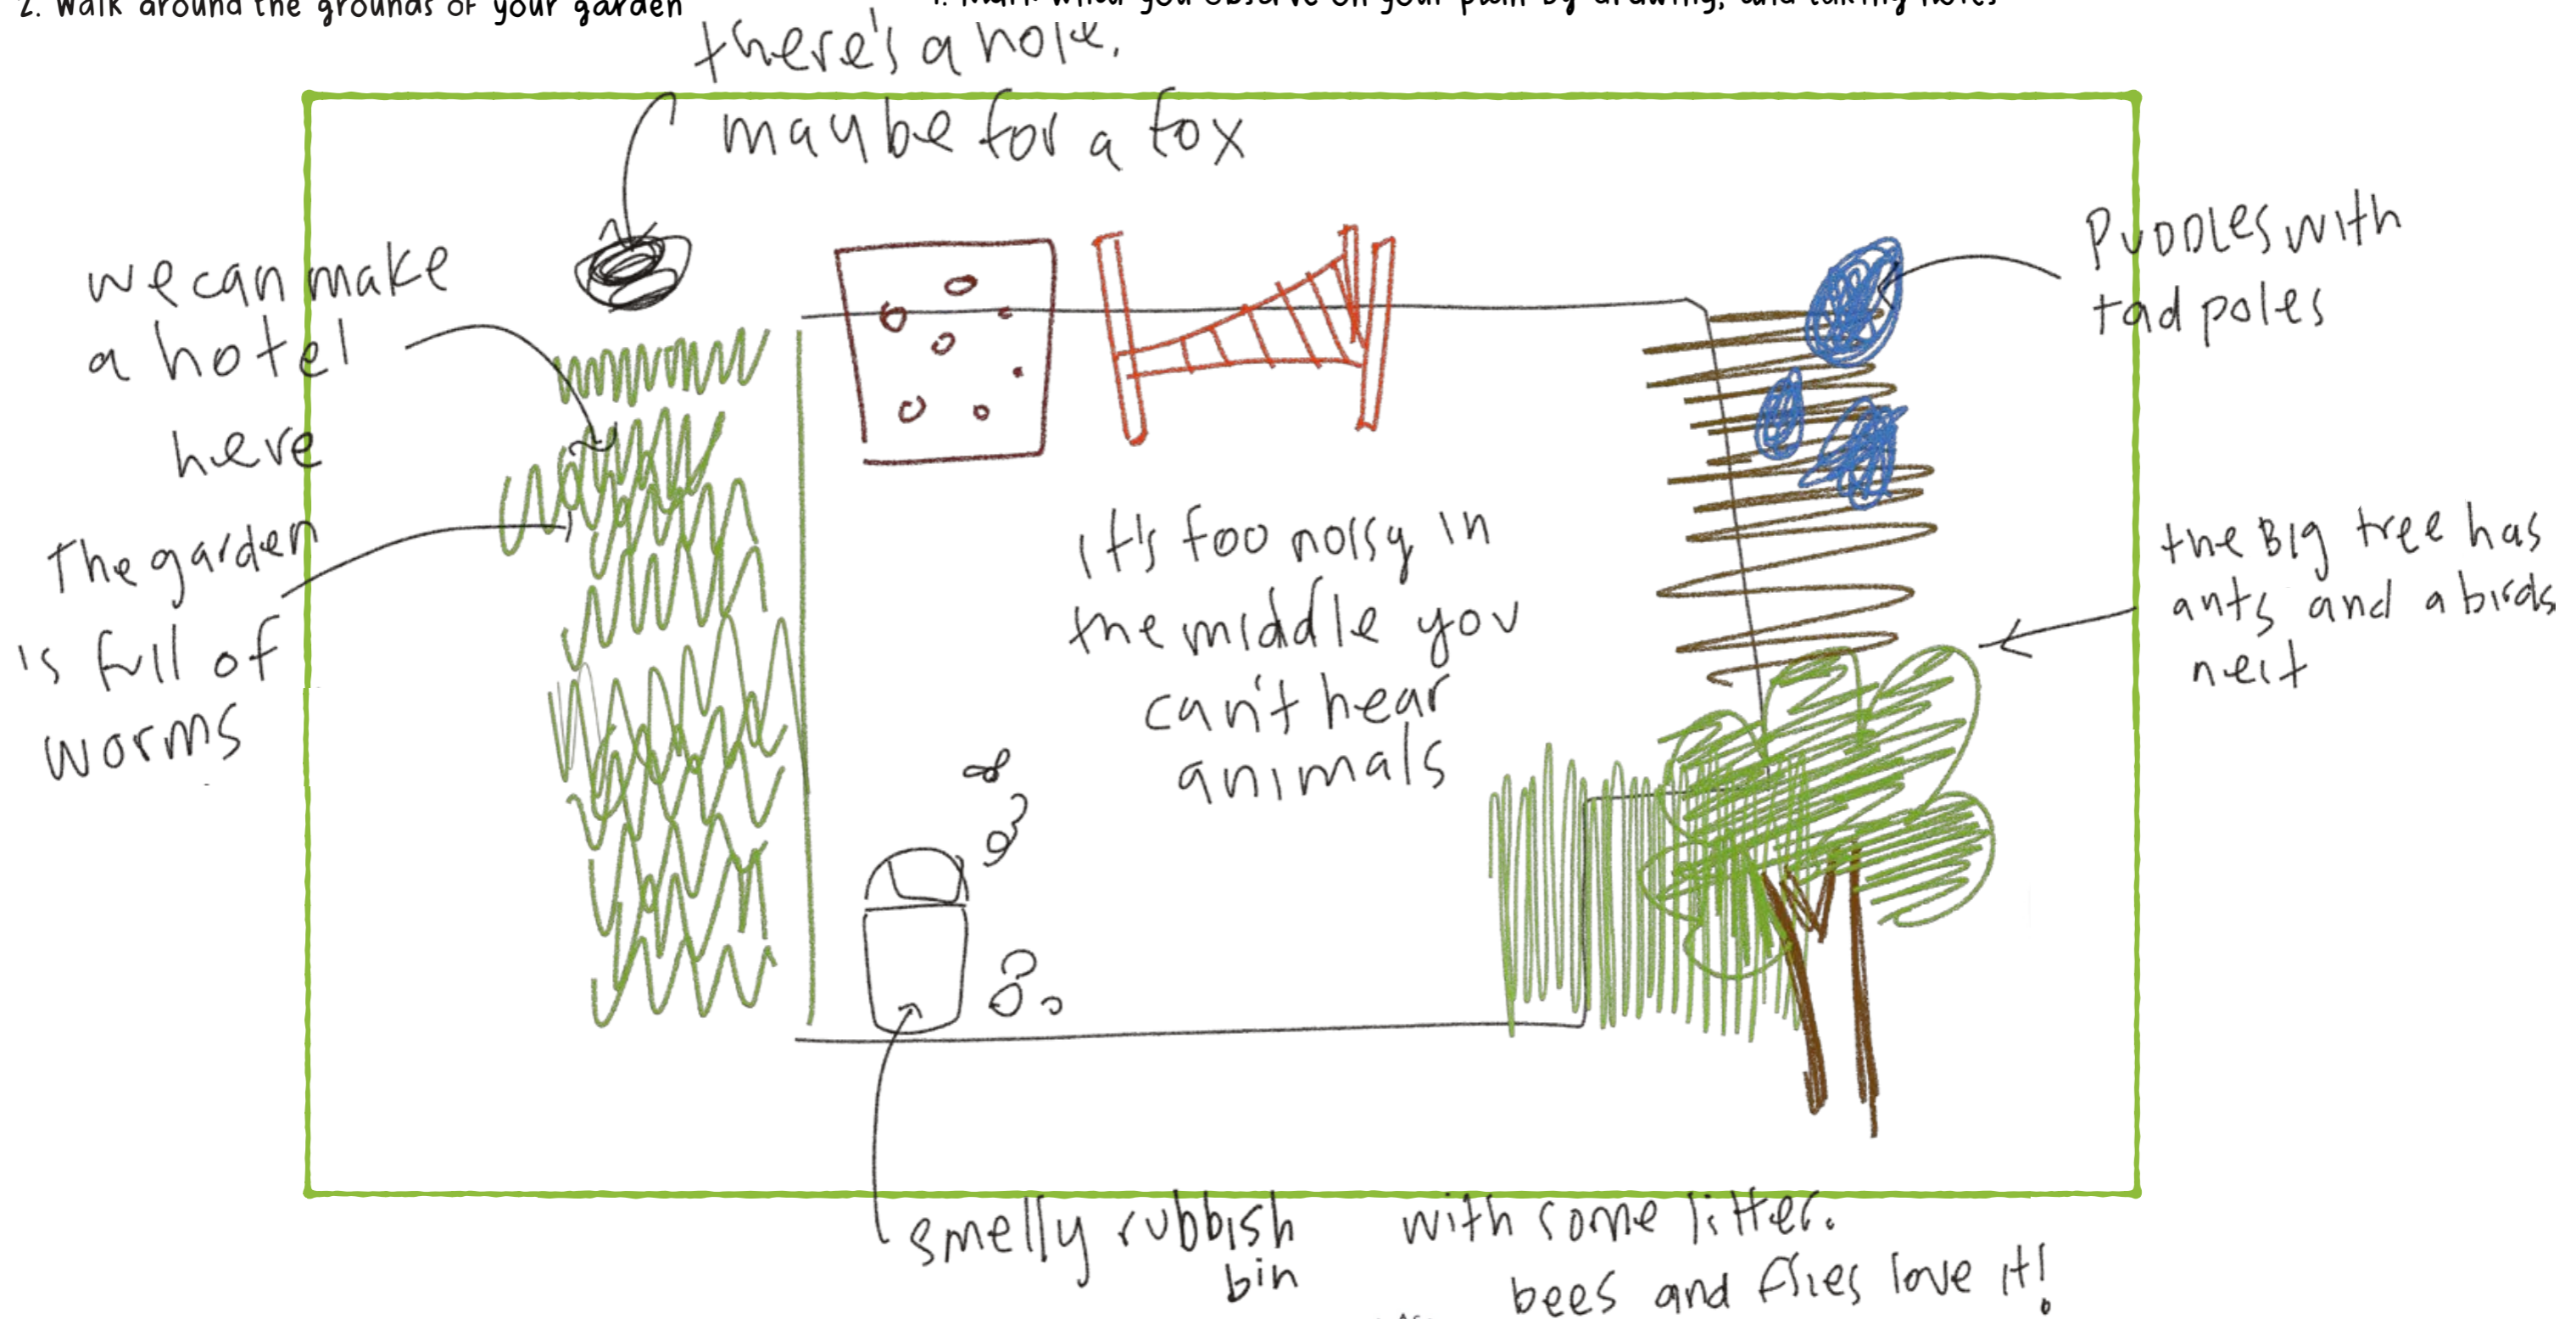 2. Walk around the grounds of your garden
4. Mark what you observe on your plan by drawing, and taking notes
there's a hole.
maybe for a fox
we can make
a hotel
here
The garden
is full of
worms
Puddles with
tadpoles
it's too noisy in
the middle you
can't hear
animals
the Big tree has
ants and a birds
nest
smelly rubbish
bin
with some litter.
bees and flies love it!